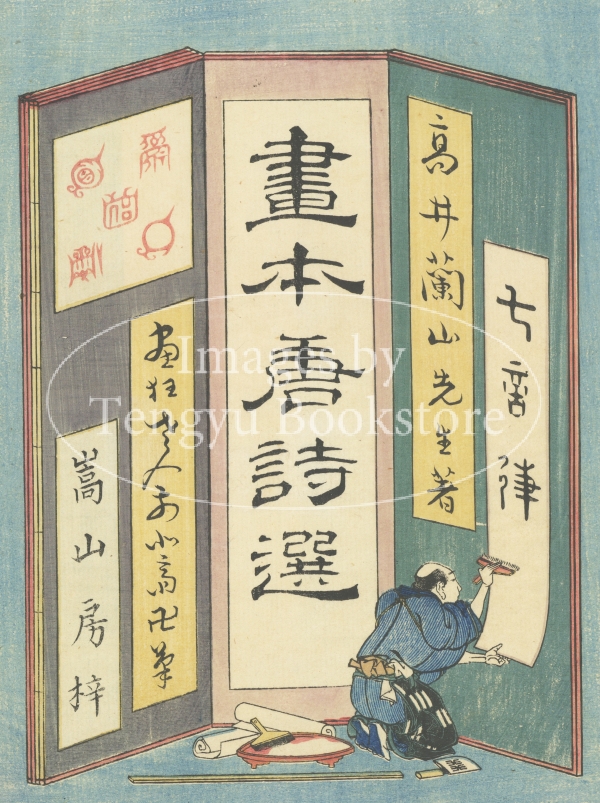 七言律
高井蘭山先生著
畫本唐詩選
画狂老人前北斎卍筆
嵩山房梓
Images by
Tengyu Bookstore